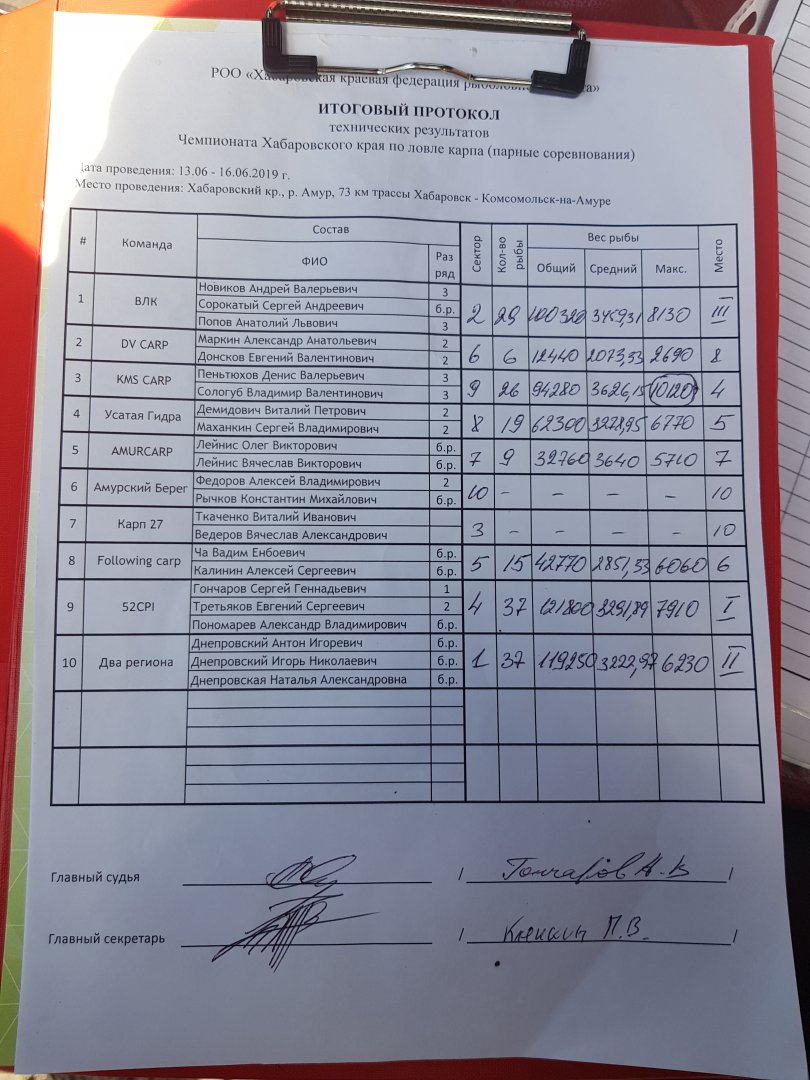 РОО «Хабаровская краевая федерация
ИТОГОВЫЙ ПРОТОКОЛ
технических результатов
Чемпионата Хабаровского края по ловле карпа (парные соревнования)
Дата проведения: 13.06 - 16.06.2019 г.
Место проведения: Хабаровский кр., р. Амур, 73 км трассы Хабаровск - Комсомольск-на-Амуре
# Команда Состав Сектор Кол-во рыбы Вес рыбы Место
ФИО Раз ряд Общий Средний Макс.
1 ВЛК Новиков Андрей Валерьевич 3 2 29 100320 3459,31 8130 III
Сорокатый Сергей Андреевич б.р.
Попов Анатолий Львович 3
2 DV CARP Маркин Александр Анатольевич 2 6 6 12440 2073,33 2690 8
Донсков Евгений Валентинович 2
3 KMS CARP Пеньтюхов Денис Валерьевич 3 9 26 94280 3626,15 10120 4
Сологуб Владимир Валентинович 3
4 Усатая Гидра Демидович Виталий Петрович 2 8 19 62300 3278,95 6770 5
Маханкин Сергей Владимирович 2
5 AMURCARP Лейнис Олег Викторович б.р. 7 9 32760 3640 5710 7
Лейнис Вячеслав Викторович б.р.
6 Амурский Берег Федоров Алексей Владимирович 2 10 - - - - 10
Рычков Константин Михайлович б.р.
7 Карп 27 Ткаченко Виталий Иванович 3 - - - - 10
Ведеров Вячеслав Александрович
8 Following carp Ча Вадим Енбоевич б.р. 5 15 42770 2851,33 6060 6
Калинин Алексей Сергеевич б.р.
9 52CPI Гончаров Сергей Геннадьевич 1 4 37 121800 3291,89 7910 I
Третьяков Евгений Сергеевич 2
Пономарев Александр Владимирович б.р.
10 Два региона Днепровский Антон Игоревич б.р. 1 37 119250 3222,97 6230 II
Днепровский Игорь Николаевич б.р.
Днепровская Наталья Александровна б.р.
Главный судья / Гончаров А.В /
Главный секретарь / П.В. /